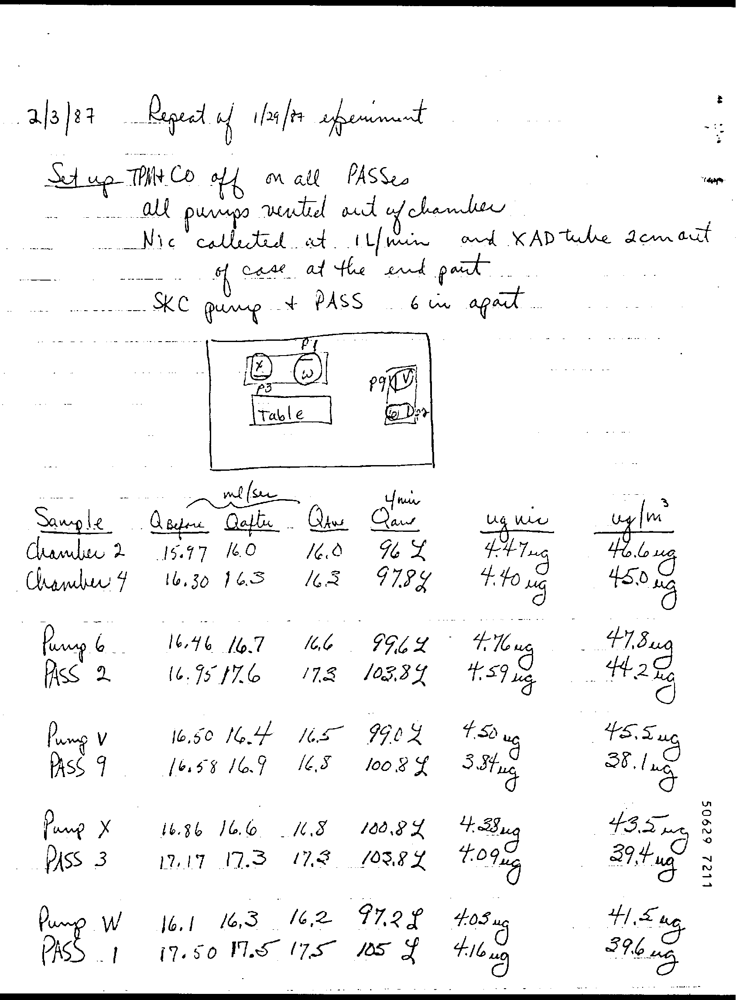 2/3/87 Repeat of 1/29/87 experiment
Set up TPM+CO off on all PASSes
all pumps vented out of chamber
Nic collected at 1L/min and XAD tube 2cm out
of case at the end part
SKC pump + PASS 6 in apart
P1
X W
P3
P9 V
Table
6 P2
ml/sec L/min
Sample QBefore Qafter QAve Qave ug nic ug/m3
Chamber 2 15.97 16.0 16.0 96 L 4.47ug 46.6ug
Chamber 4 16.30 16.3 16.3 97.8L 4.40 ug 45.0 ug
Pump 6 16.46 16.7 16.6 99.6L 4.76ug 47.8ug
PASS 2 16.95 17.6 17.3 103.8L 4.59 ug 44.2 ug
Pump V 16.50 16.4 16.5 99.0 L 4.50 ug 45.5 ug
PASS 9 16.58 16.9 16.8 100.8 L 3.84ug 38.1 ug
Pump X 16.86 16.6 16.8 100.8L 4.38ug 43.5 ug
PASS 3 17.17 17.3 17.3 103.8L 4.09ug 39.4 ug
Pump W 16.1 16.3 16.2 97.2 L 4.03 ug 41.5 ug
PASS 1 17.50 17.5 17.5 105 L 4.16 ug 39.6 ug
50629 7211